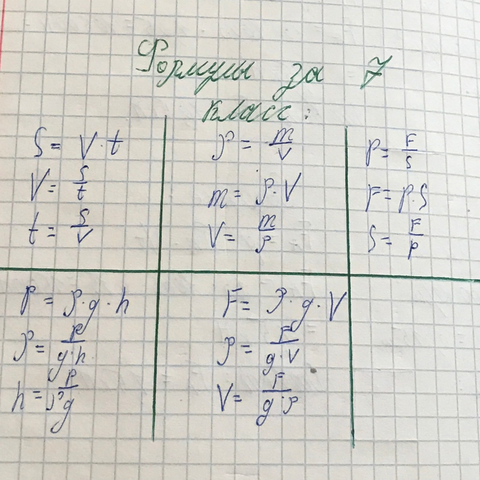 Формулы за 7
класс:
S = V · t
V = S/t
t = S/V
ρ = m/V
m = ρ · V
V = m/ρ
p = F/S
F = p · S
S = F/p
P = ρ · g · h
ρ = P/g·h
h = P/ρ·g
F = ρ · g · V
ρ = F/g·V
V = F/g·ρ